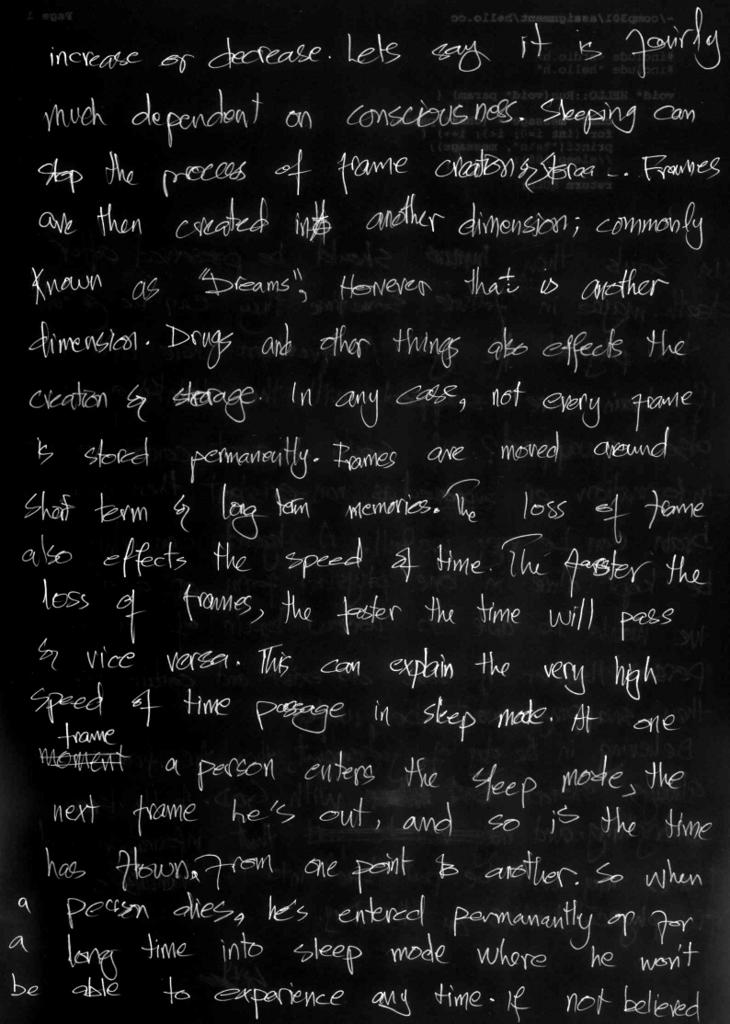 increase or decrease. Lets say it is fairly
much dependent on consciousness. Sleeping can
stop the process of frame creation & storaa... Frames
are then created in another dimension; commonly
known as "Dreams", However that is another
dimension. Drugs and other things also effects the
creation & storage. In any case, not every frame
is stored permanently. Frames are moved around
short term & long term memories. The loss of frame
also effects the speed of time. The faster the
loss of frames, the faster the time will pass
& vice versa. This can explain the very high
speed of time passage in sleep mode. At one
frame
moment a person enters the sleep mode, the
next frame he's out, and so is the time
has flown, from one point to another. So when
a person dies, he's entered permanantly or for
a long time into sleep mode where he won't
be able to experience any time. If not believed